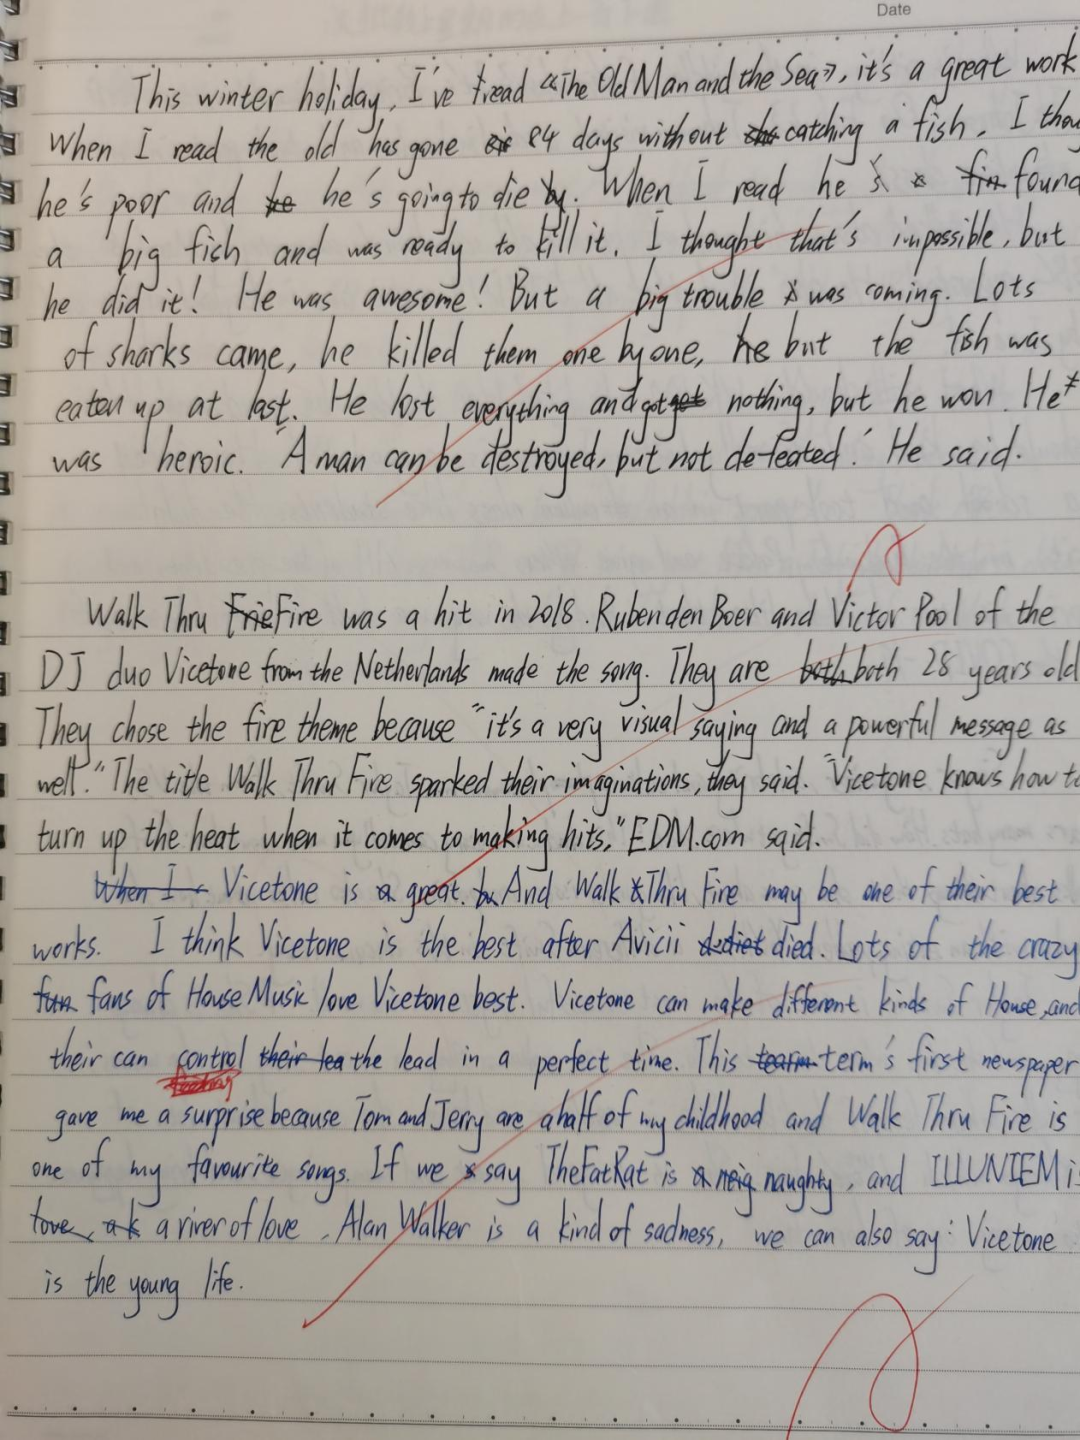 Date
This winter holiday, I've read «The Old Man and the Sea», it's a great work
When I read the old has gone 84 days without catching a fish, I thou
he's poor and he's going to die. When I read he found
a big fish and was ready to kill it. I thought that's impossible, but
he did it! He was awesome! But a big trouble was coming. Lots
of sharks came, he killed them one by one, but the fish was
eaten up at last. He lost everything and got nothing, but he won. He
was heroic. "A man can be destroyed, but not defeated." He said.
Walk Thru Fire was a hit in 2018. Ruben den Boer and Victor Pool of the
DJ duo Vicetone from the Netherlands made the song. They are both 28 years old
They chose the fire theme because "it's a very visual saying and a powerful message as
well." The title Walk Thru Fire sparked their imaginations, they said. "Vicetone knows how to
turn up the heat when it comes to making hits," EDM.com said.
Vicetone is great. And Walk Thru Fire may be one of their best
works. I think Vicetone is the best after Avicii died. Lots of the crazy
fans of House Music love Vicetone best. Vicetone can make different kinds of House, and
their can control the lead in a perfect time. This term's first newspaper
gave me a surprise because Tom and Jerry are a half of my childhood and Walk Thru Fire is
one of my favourite songs. If we say TheFatRat is naughty, and ILLUNIEM i
a river of love, Alan Walker is a kind of sadness, we can also say: Vicetone
is the young life.